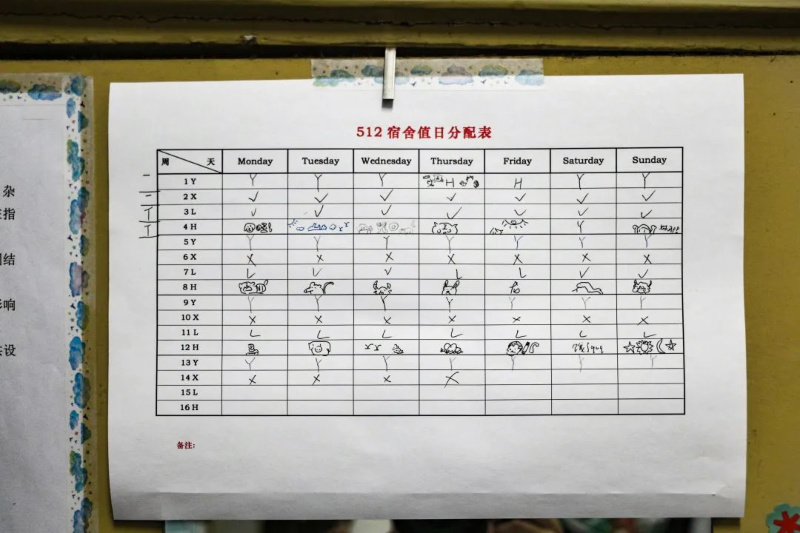 512宿舍值日分配表
周 天 Monday Tuesday Wednesday Thursday Friday Saturday Sunday
1 Y Y Y Y H H Y Y
2 X ✓ ✓ ✓ ✓ ✓ ✓ ✓
3 L ✓ ✓ ✓ ✓ ✓ ✓ ✓
4 H Y
5 Y Y Y Y Y Y Y Y
6 X X X X X X X X
7 L L L ✓ L L ✓ ✓
8 H
9 Y Y Y Y Y Y Y Y
10 X X X X X X X X
11 L L L L L L L L
12 H
13 Y Y Y Y Y Y Y Y
14 X X X X X
15 L
16 H
备注:
杂
指
结
影响
设